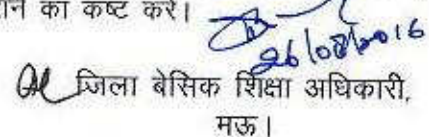 का कष्ट करें।
26/08/2016
जिला बेसिक शिक्षा अधिकारी,
मऊ।